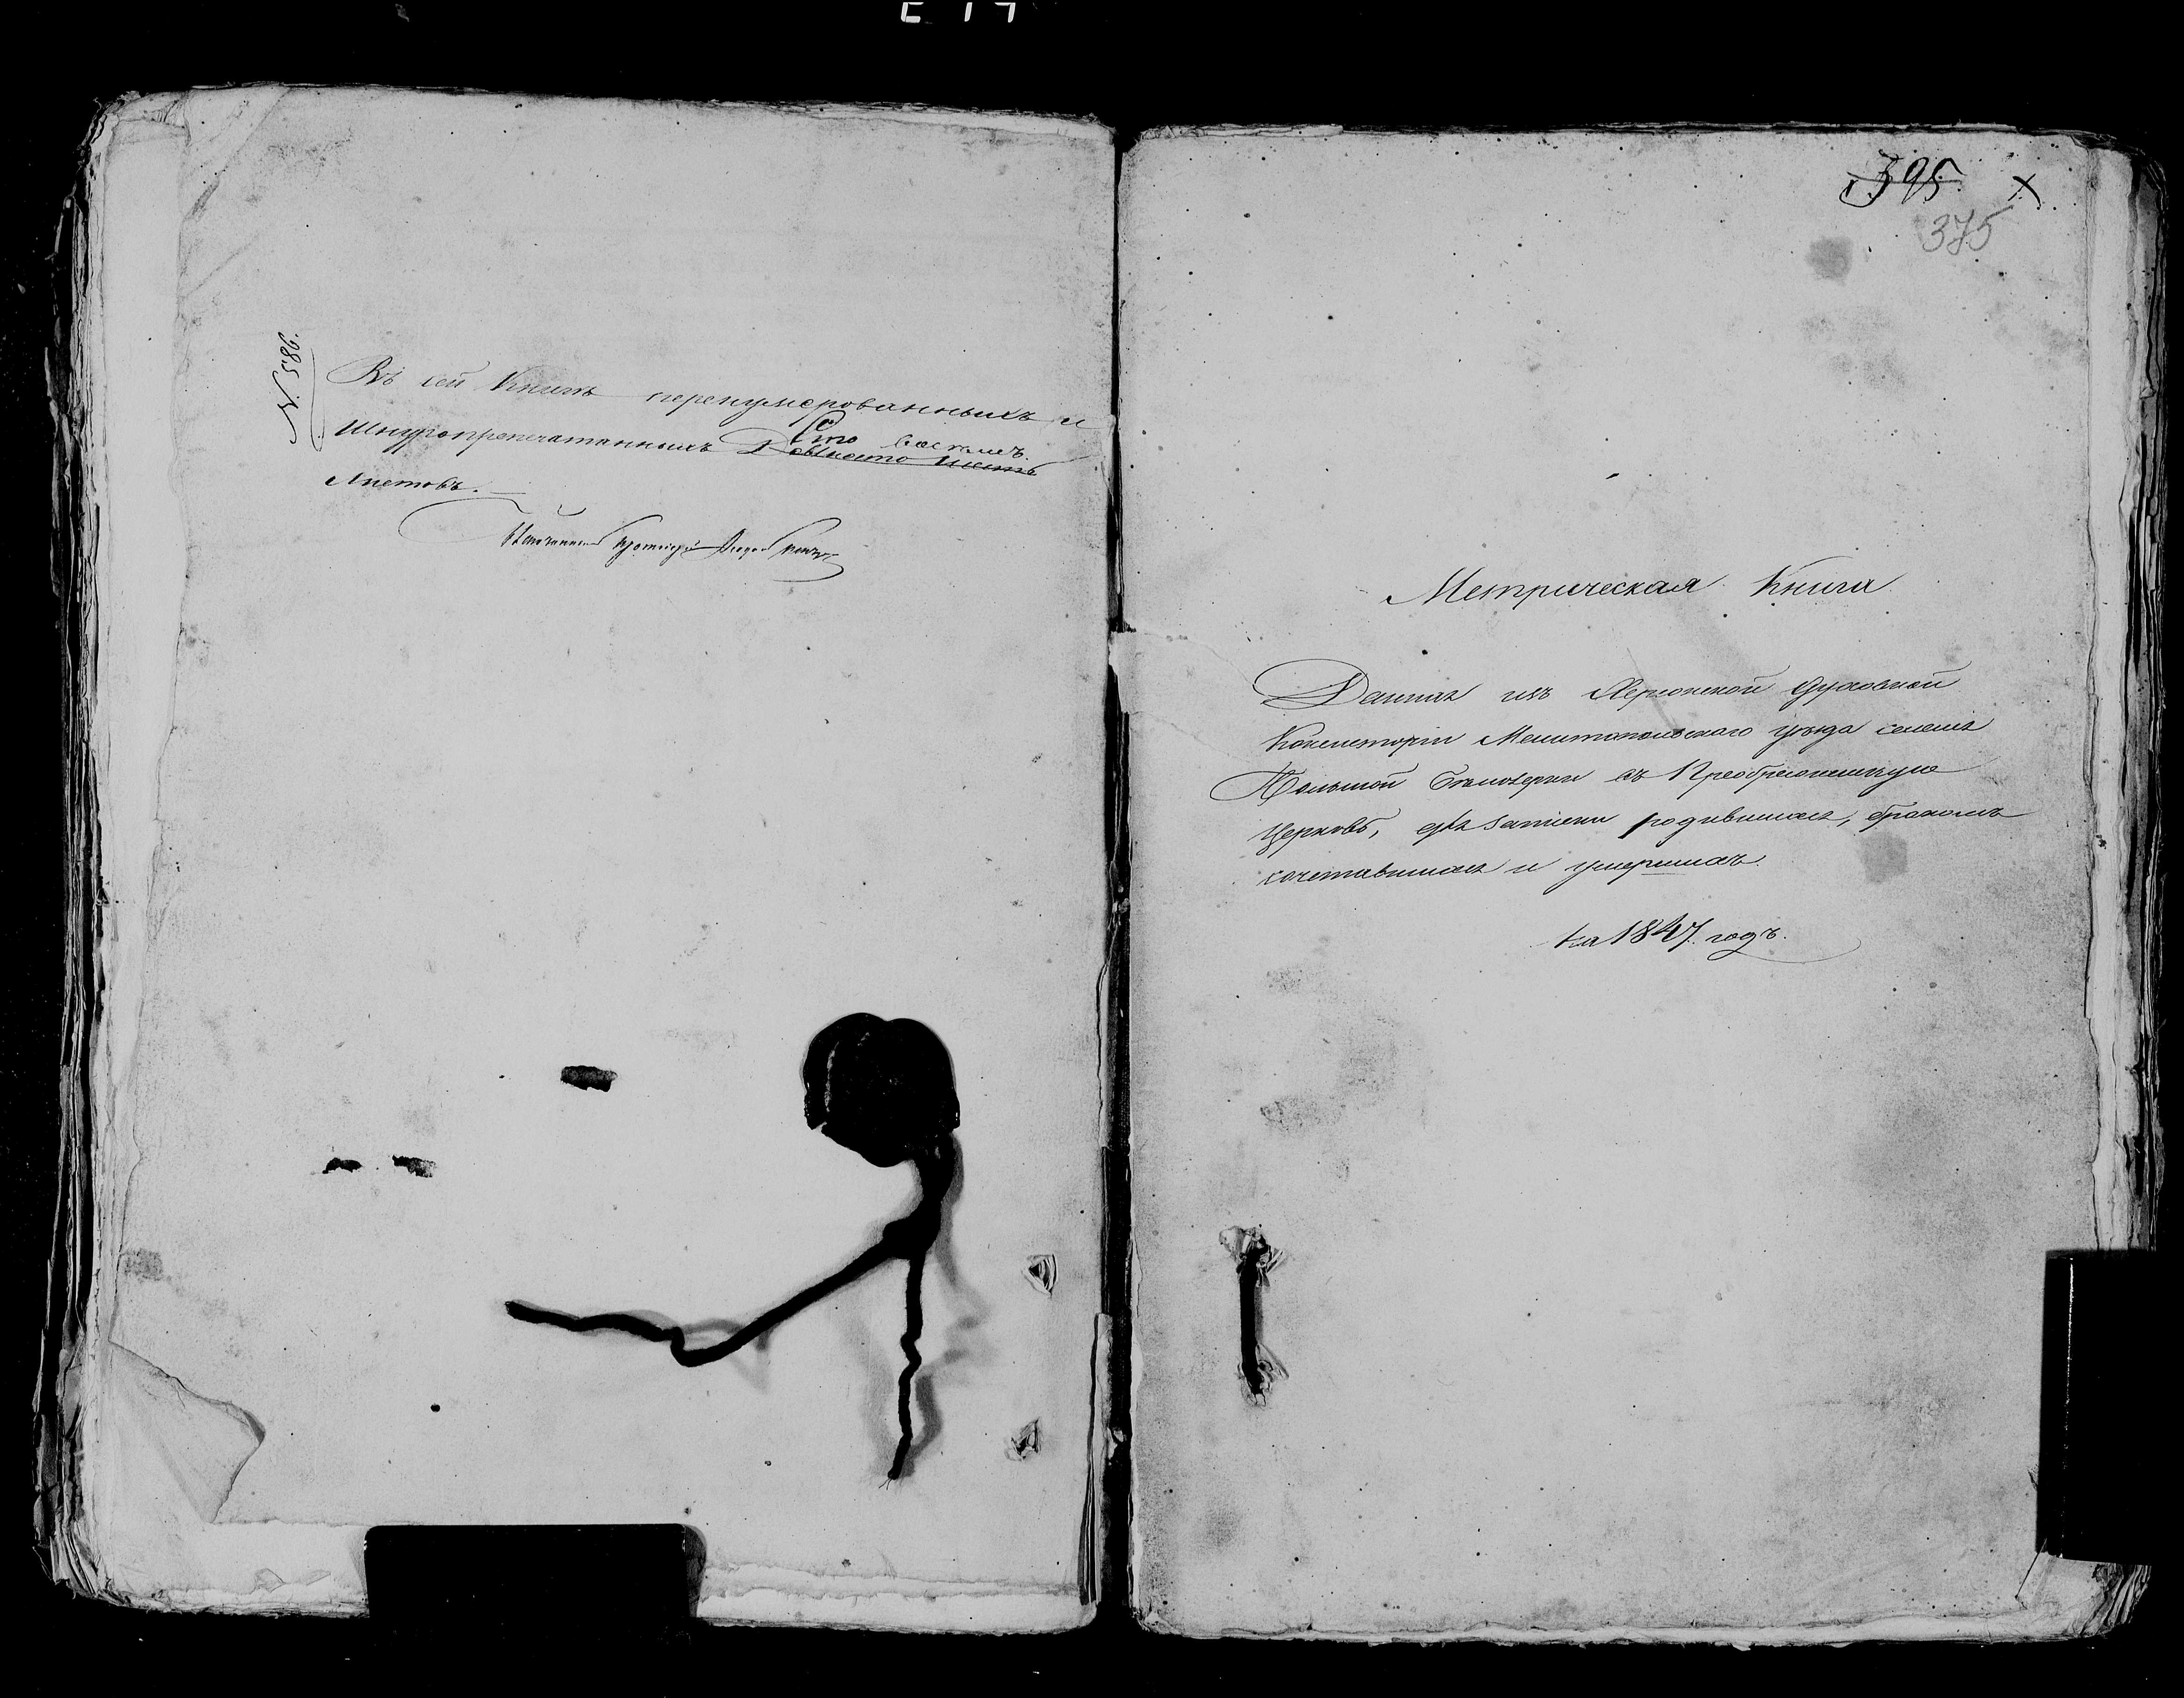 N. 586.
Въ сей Книгѣ перенумерованныхъ и
Шнуропрепечатанныхъ Сто восемь
Девяносто шесть
Листовъ.
Протоіерей
395 X
375
Метрическая Книга
Данная изъ Херсонской Духовной
Консисторіи Мелитопольскаго уѣзда селенія
Большой Бѣлозерки въ Преображенскую
Церковь, для записки родившихся, бракомъ
сочетавшихся и умершихъ.
на 1847. годъ.